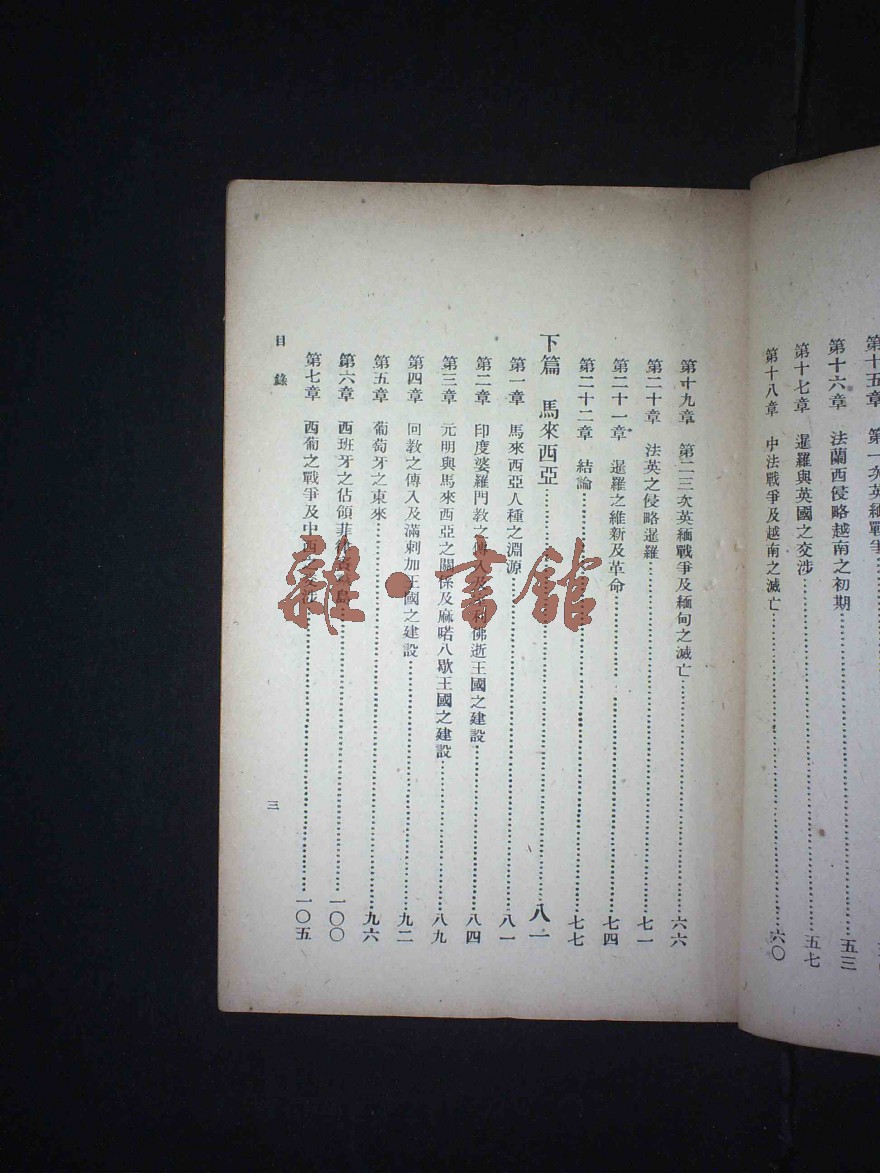 第十五章 第一次英緬戰爭
第十六章 法蘭西侵略越南之初期 五三
第十七章 暹羅與英國之交涉 五七
第十八章 中法戰爭及越南之滅亡 六〇
第十九章 第二三次英緬戰爭及緬甸之滅亡 六六
第二十章 法英之侵略暹羅 七一
第二十一章 暹羅之維新及革命 七四
第二十二章 結論 七七
下篇 馬來西亞 八一
第一章 馬來西亞人種之淵源 八一
第二章 印度婆羅門教之傳入及 利佛逝王國之建設 八四
第三章 元明與馬來西亞之關係及麻喏八歇王國之建設 八九
第四章 回教之傳入及滿剌加王國之建設 九二
第五章 葡萄牙之東來 九六
第六章 西班牙之佔領菲律賓羣島 一〇〇
第七章 西葡之戰爭及中西之交涉 一〇五
目錄
三
雜·書館